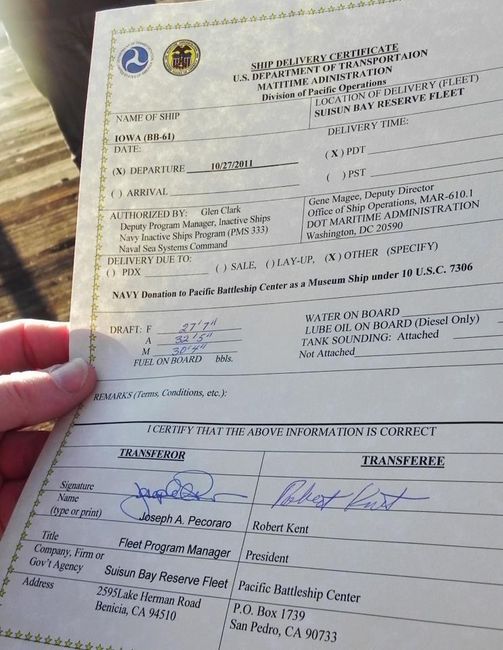 SHIP DELIVERY CERTIFICATE
U.S. DEPARTMENT OF TRANSPORTAION
MATITIME ADINISTRATION
Division of Pacific Operations
NAME OF SHIP
IOWA (BB-61)
LOCATION OF DELIVERY (FLEET)
SUISUN BAY RESERVE FLEET
DATE:
(X) DEPARTURE 10/27/2011
( ) ARRIVAL
DELIVERY TIME:
(X) PDT
( ) PST
AUTHORIZED BY: Glen Clark
Deputy Program Manager, Inactive Ships
Navy Inactive Ships Program (PMS 333)
Naval Sea Systems Command
Gene Magee, Deputy Director
Office of Ship Operations, MAR-610.1
DOT MARITIME ADMINISTRATION
Washington, DC 20590
DELIVERY DUE TO:
( ) PDX ( ) SALE, ( ) LAY-UP, (X) OTHER (SPECIFY)
NAVY Donation to Pacific Battleship Center as a Museum Ship under 10 U.S.C. 7306
DRAFT: F 27'7"
A 32'5"
M 30'4"
FUEL ON BOARD bbls.
WATER ON BOARD
LUBE OIL ON BOARD (Diesel Only)
TANK SOUNDING: Attached
Not Attached
REMARKS (Terms, Conditions, etc.):
I CERTIFY THAT THE ABOVE INFORMATION IS CORRECT
TRANSFEROR TRANSFEREE
Signature Robert Kent
Name
(type or print) Joseph A. Pecoraro Robert Kent
Title Fleet Program Manager President
Company, Firm or
Gov't Agency Suisun Bay Reserve Fleet Pacific Battleship Center
Address 2595Lake Herman Road P.O. Box 1739
Benicia, CA 94510 San Pedro, CA 90733